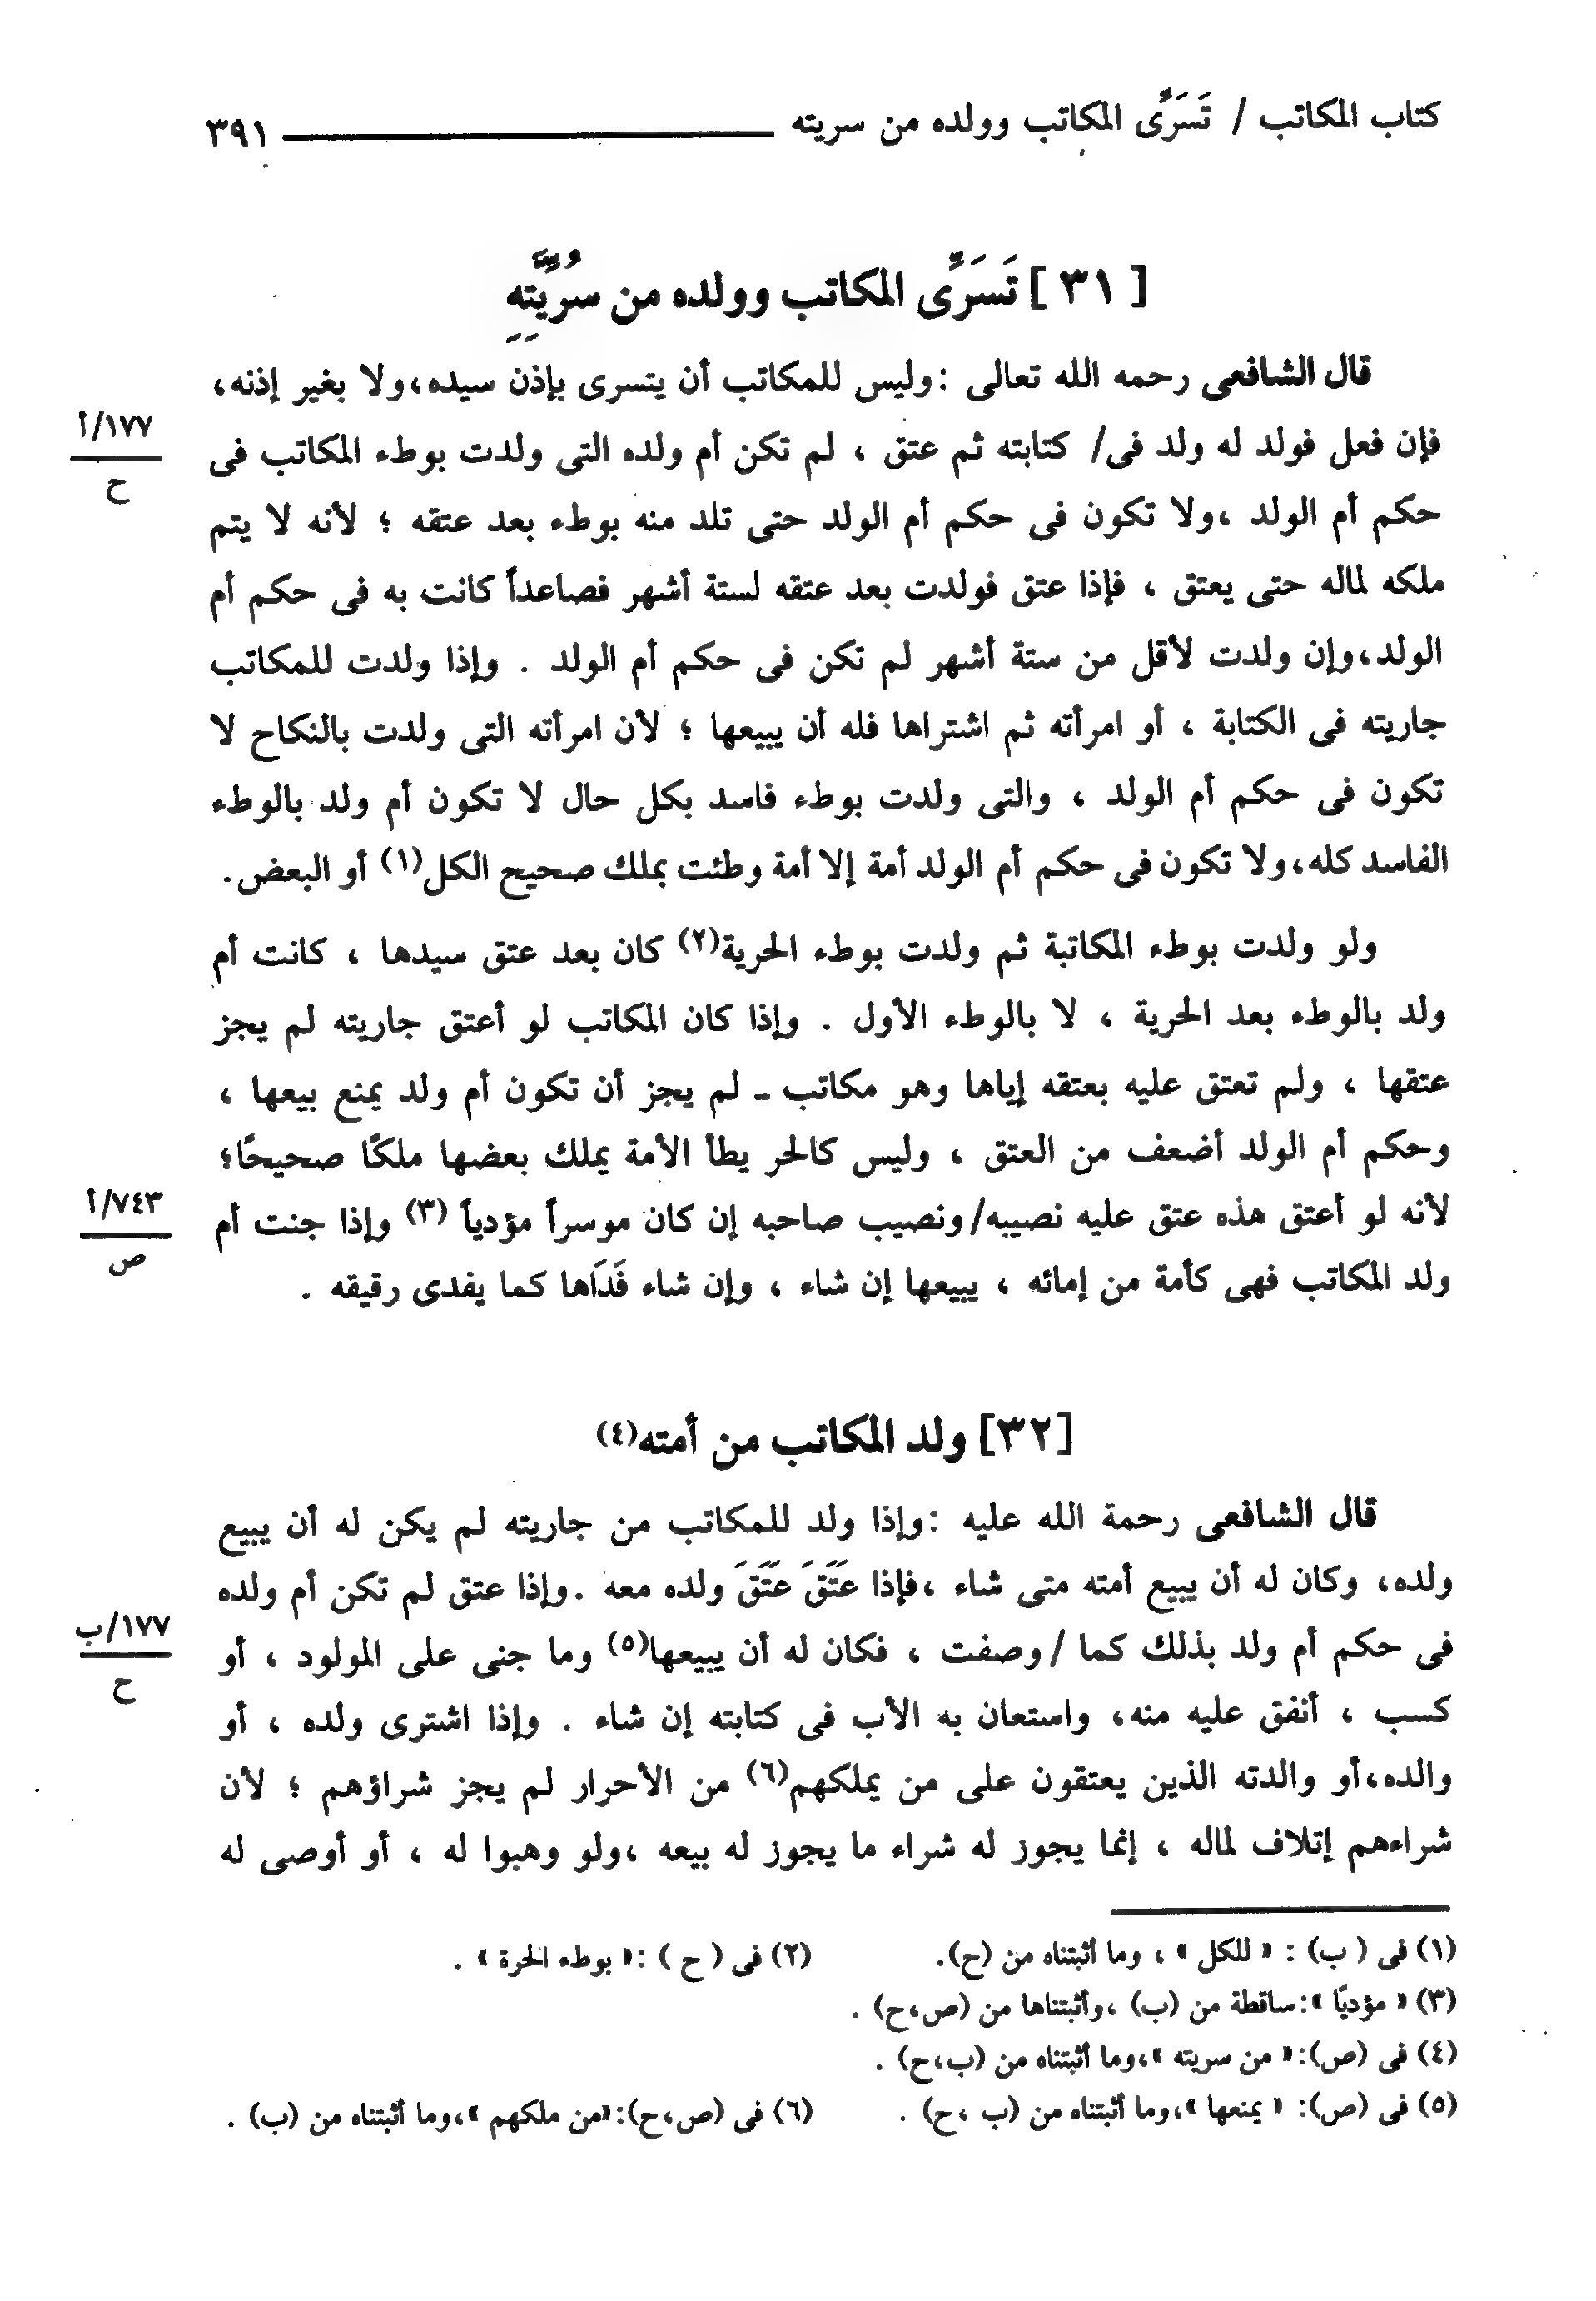 كتاب المكاتب / تَسَرِّى المكاتب وولده من سريته ٣٩١
[ ٣١ ] تَسَرِّى المكاتب وولده من سُرِّيَّتِهِ
قال الشافعى رحمه الله تعالى : وليس للمكاتب أن يتسرى بإذن سيده، ولا بغير إذنه،
فإن فعل فولد له ولد فى/ كتابته ثم عتق ، لم تكن أم ولده التى ولدت بوطء المكاتب فى
١٧٧/أ
ح
حكم أم الولد ،ولا تكون فى حكم أم الولد حتى تلد منه بوطء بعد عتقه ؛ لأنه لا يتم
ملكه لماله حتى يعتق ، فإذا عتق فولدت بعد عتقه لستة أشهر فصاعداً كانت به فى حكم أم
الولد،وإن ولدت لأقل من ستة أشهر لم تكن فى حكم أم الولد . وإذا ولدت للمكاتب
جاريته فى الكتابة ، أو امرأته ثم اشتراها فله أن يبيعها ؛ لأن امرأته التى ولدت بالنكاح لا
تكون فى حكم أم الولد ، والتى ولدت بوطء فاسد بكل حال لا تكون أم ولد بالوطء
الفاسد كله،ولا تكون فى حكم أم الولد أمة إلا أمة وطئت بملك صحيح الكل(١) أو البعض.
ولو ولدت بوطء المكاتبة ثم ولدت بوطء الحرية(٢) كان بعد عتق سيدها ، كانت أم
ولد بالوطء بعد الحرية ، لا بالوطء الأول . وإذا كان المكاتب لو أعتق جاريته لم يجز
عتقها ، ولم تعتق عليه بعتقه إياها وهو مكاتب ـ لم يجز أن تكون أم ولد يمنع بيعها ،
وحكم أم الولد أضعف من العتق ، وليس كالحر يطأ الأمة يملك بعضها ملكًا صحيحًا؛
لأنه لو أعتق هذه عتق عليه نصيبه/ونصيب صاحبه إن كان موسراً مؤدياً (٣) وإذا جنت أم
٧٤٣/أ
ص
ولد المكاتب فهى كأمة من إمائه ، يبيعها إن شاء ، وإن شاء فَدَاَها كما يفدى رقيقه .
[٣٢] ولد المكاتب من أمته(٤)
قال الشافعى رحمة الله عليه :وإذا ولد للمكاتب من جاريته لم يكن له أن يبيع
ولده، وكان له أن يبيع أمته متى شاء ،فإذا عَتَقَ عَتَقَ ولده معه .وإذا عتق لم تكن أم ولده
فى حكم أم ولد بذلك كما /وصفت ، فكان له أن يبيعها(٥) وما جنى على المولود ، أو
١٧٧/ب
ح
كسب ، أنفق عليه منه، واستعان به الأب فى كتابته إن شاء . وإذا اشترى ولده ، أو
والده،أو والدته الذين يعتقون على من يملكهم(٦) من الأحرار لم يجز شراؤهم ؛ لأن
شراءهم إتلاف لماله ، إنما يجوز له شراء ما يجوز له بيعه ،ولو وهبوا له ، أو أوصى له
(١) فى ( ب) : « للكل » ، وما أثبتناه من (ح). (٢) فى ( ح ) :« بوطء الحرة » .
(٣) « مؤديًا »:ساقطة من (ب) ،وأثبتناها من (ص،ح) .
(٤) فى (ص):« من سريته »،وما أثبتناه من (ب،ح) .
(٥) فى (ص): « يمنعها »،وما أثبتناه من (ب ،ح) . (٦) فى (ص،ح):«من ملكهم »،وما أثبتناه من (ب) .